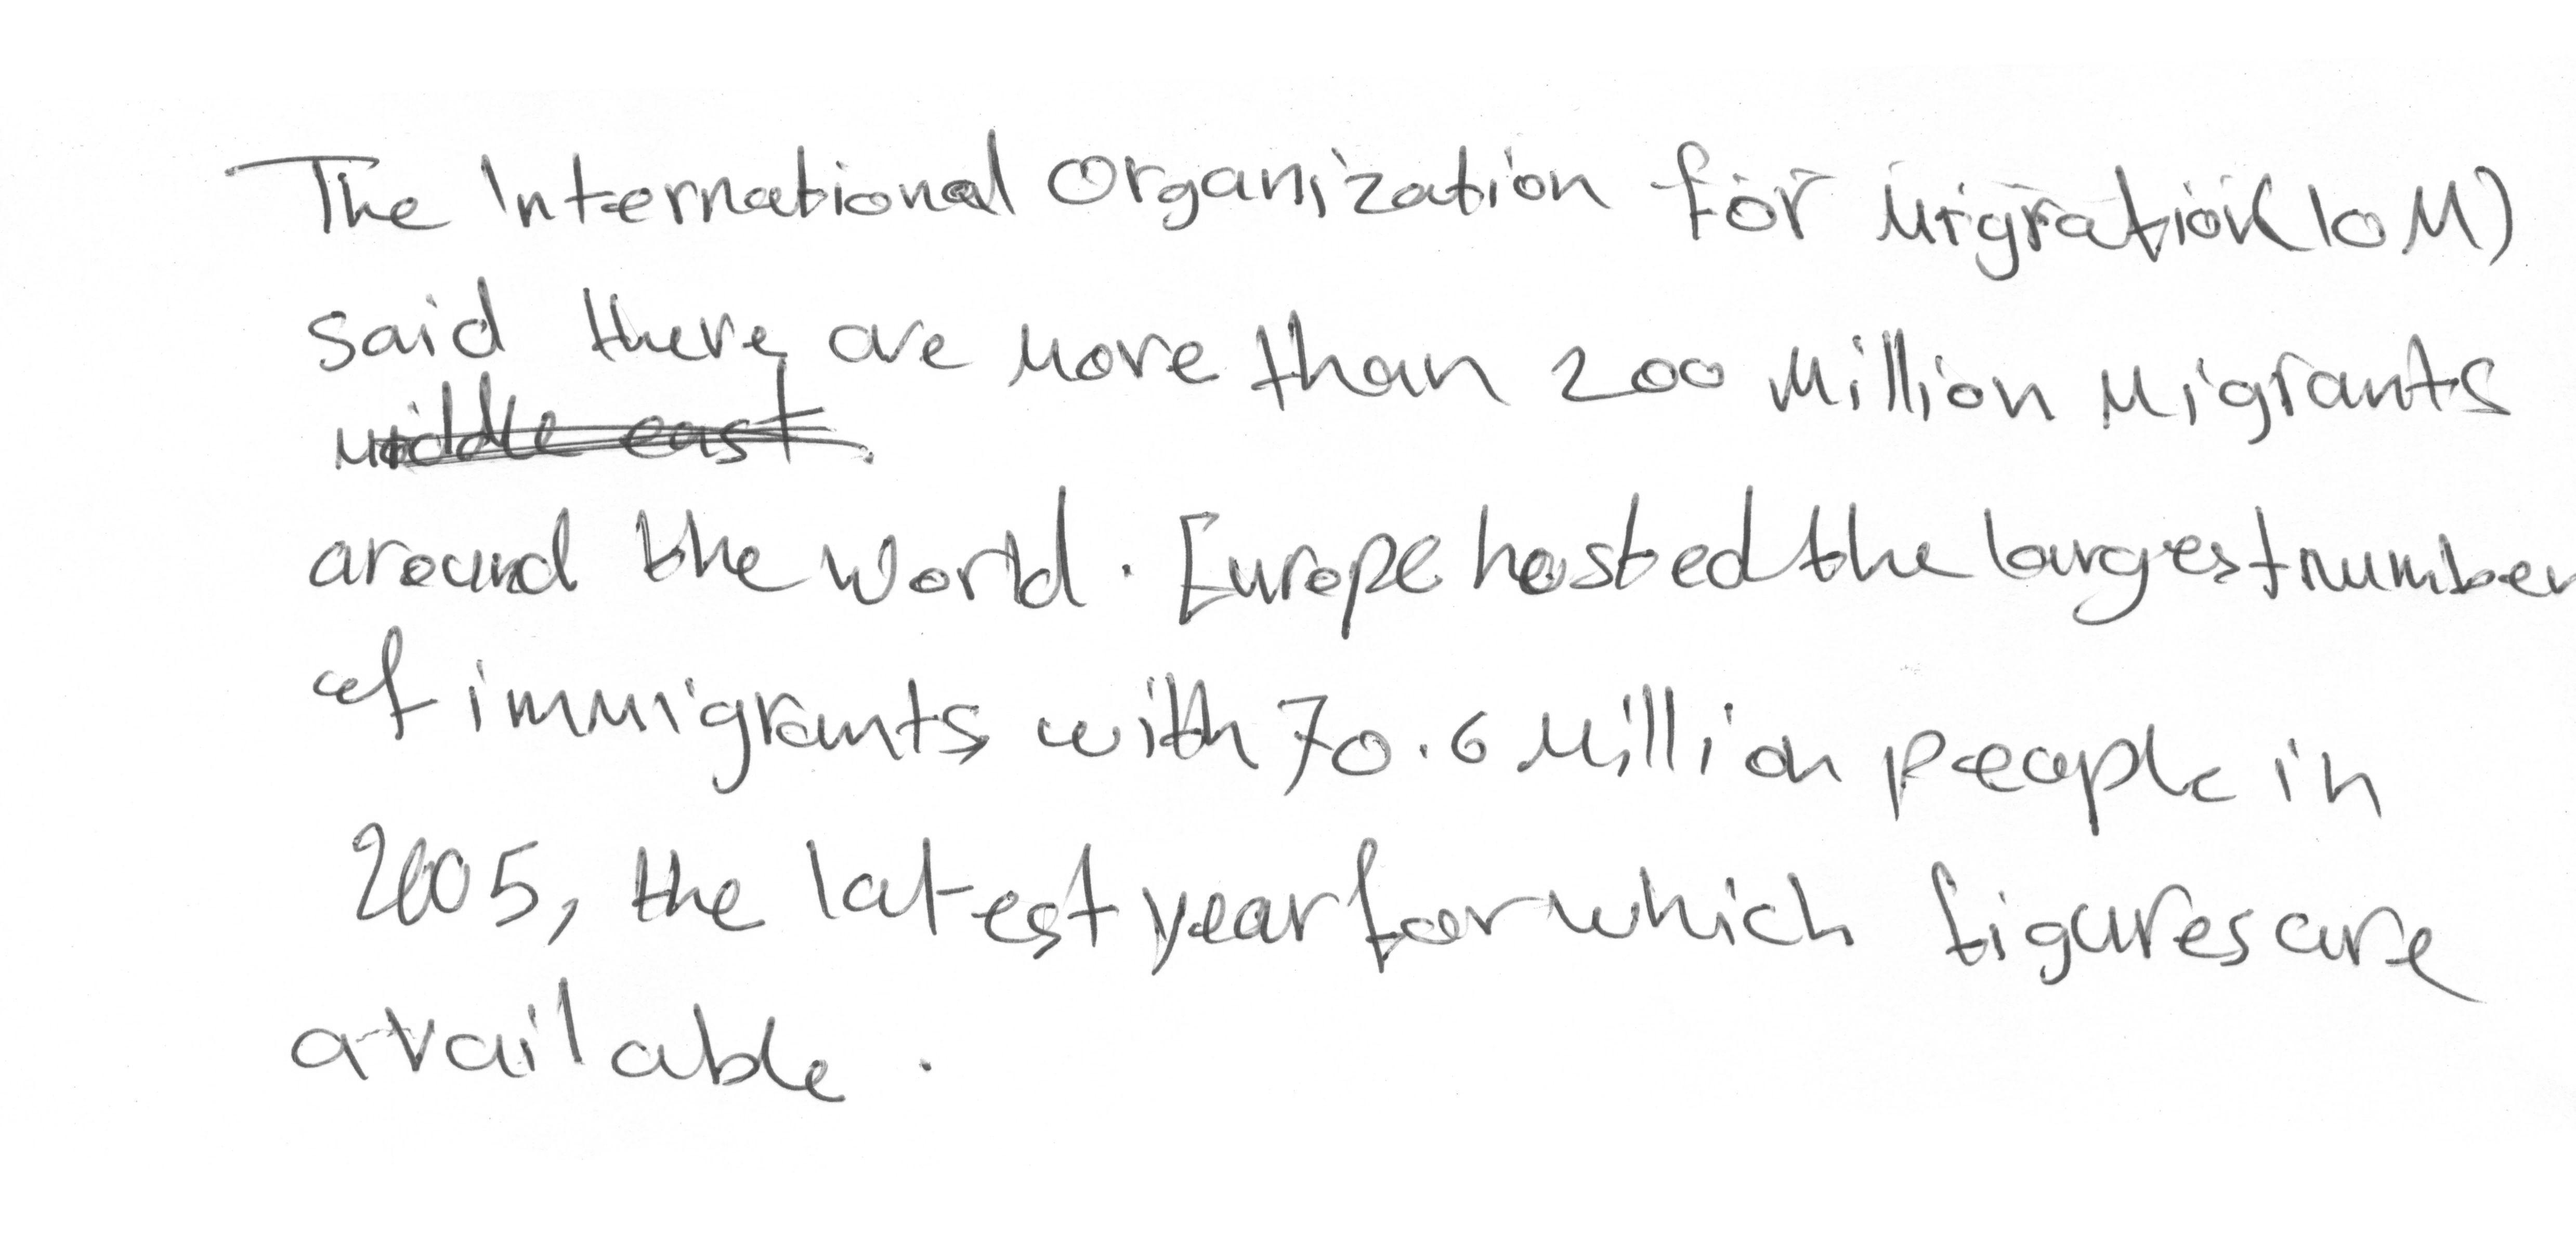 The International Organization for Migration (IOM)
said there are more than 200 Million Migrants
middle east
around the world. Europe hosted the largest number
of immigrants with 70.6 Million people in
2005, the latest year for which figures are
available.